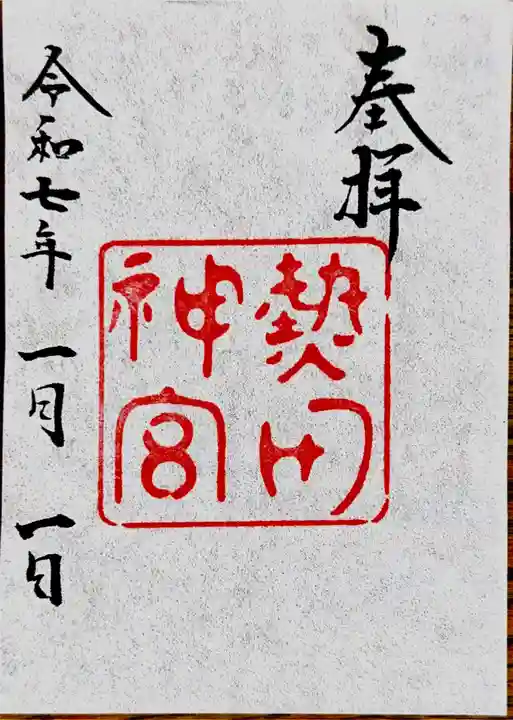 奉拝
熱田
神宮
令和七年 一月 一日